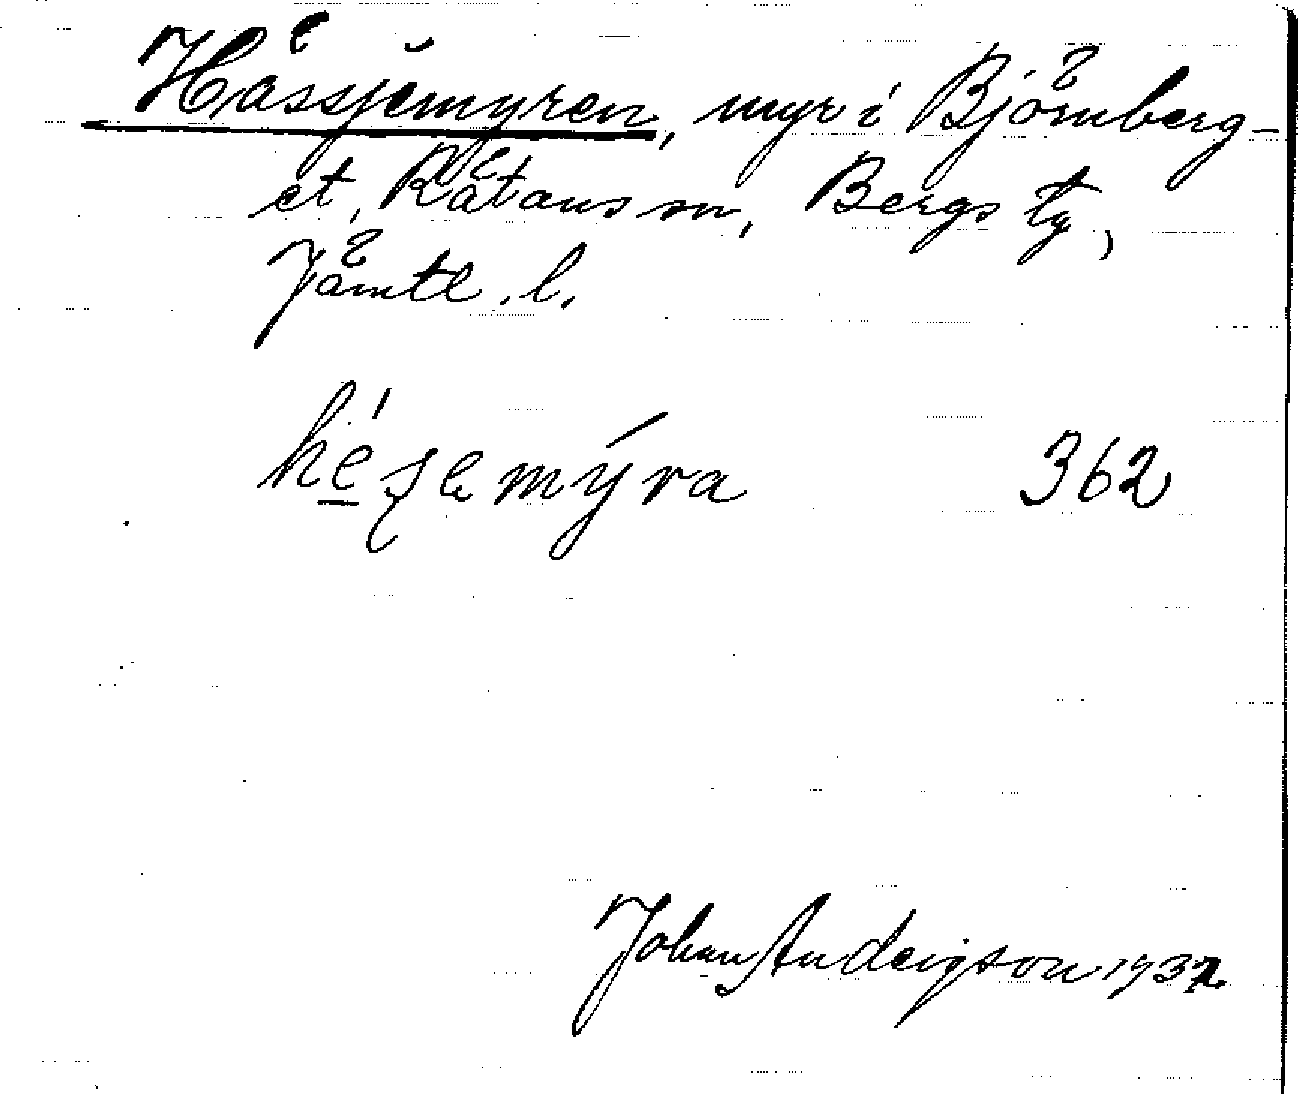 Hässjemyren, myr i Björnberg-
et, Rätans sn, Bergs tg,
Jämtl. l.
hésemýra 362
Johan Andeigson 1932